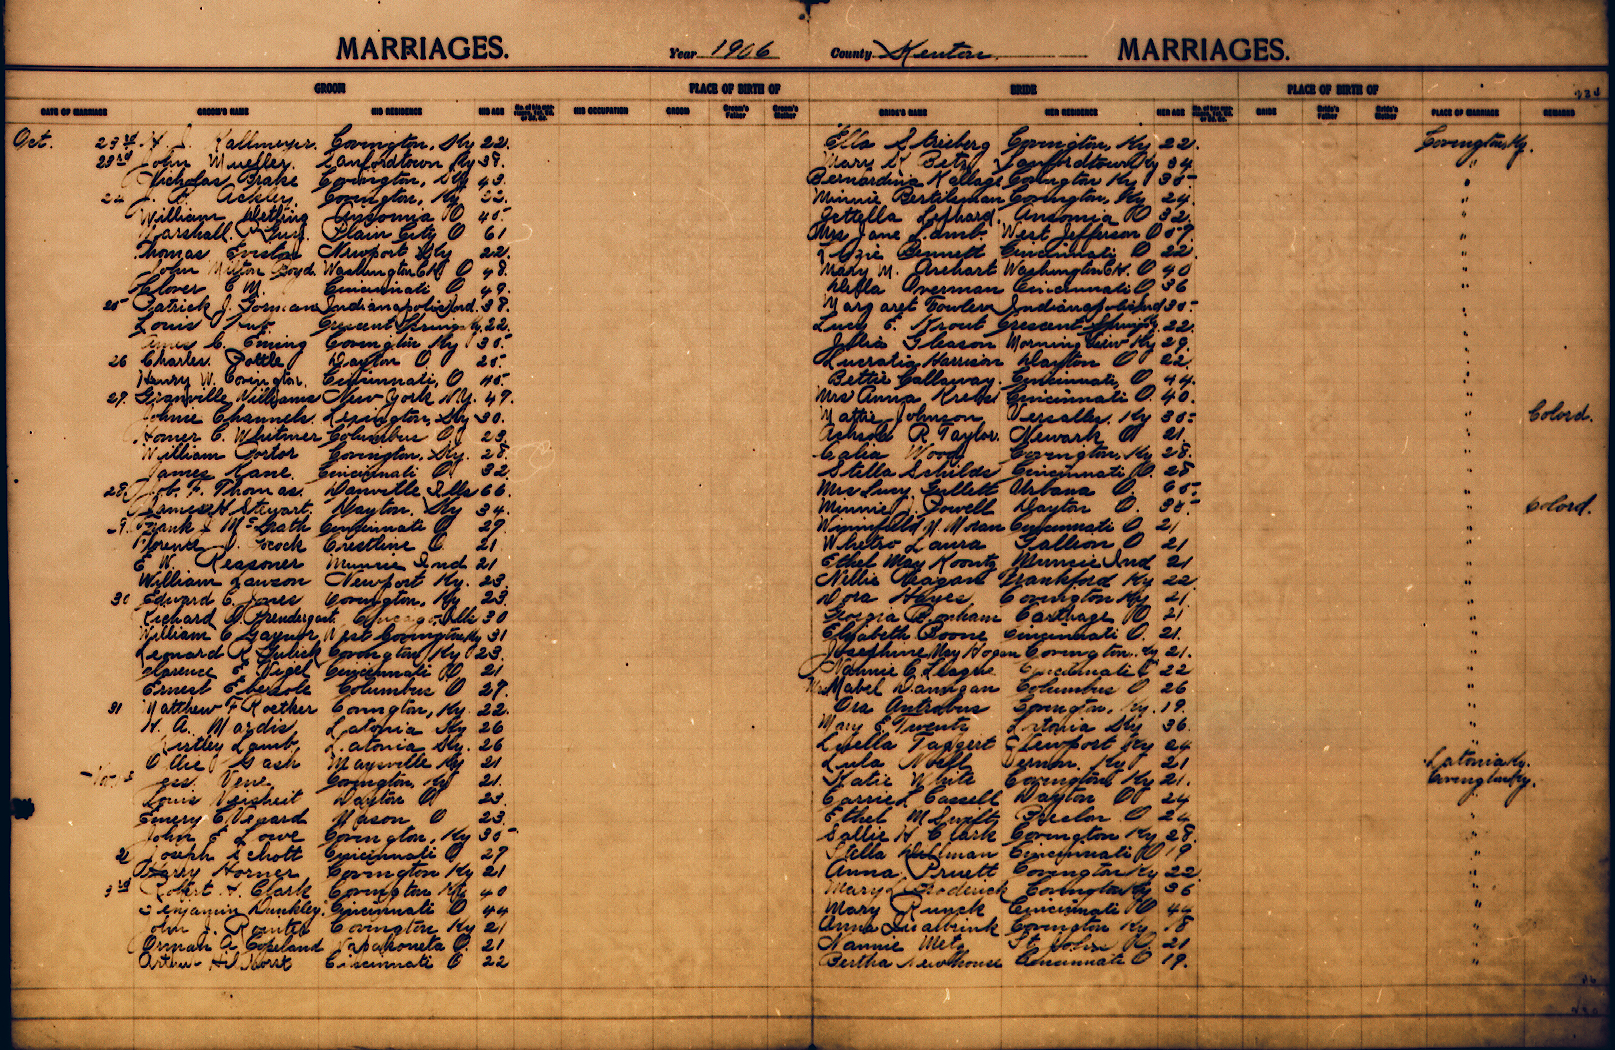 MARRIAGES. Year 1906 County Kenton MARRIAGES.
GROOM PLACE OF BIRTH OF BRIDE PLACE OF BIRTH OF
DATE OF MARRIAGE GROOM'S NAME HIS RESIDENCE HIS AGE HIS OCCUPATION GROOM Groom's Father Groom's Mother BRIDE'S NAME HER RESIDENCE HER AGE BRIDE Bride's Father Bride's Mother PLACE OF MARRIAGE REMARKS
Oct. 23rd H. J. Kallmeyer Covington, Ky 22. Ella Strieberg Covington, Ky 22. Covington Ky.
23rd John Mueller Sanfordtown Ky 38. Mary Betz Sanfordtown Ky 34 "
Nicholas Brake Covington, Ky 43. Bernardina Kallage Covington Ky 35 "
24 Ackley Covington, Ky. 22. Minnie Bertleman Covington, Ky 24. "
William Ansonia O 45 Lephard Ansonia O 32. "
Marshall Guy Plain City O 61 Mrs Jane Lamb West Jefferson O 59 "
Thomas Newport Ky 22. Ozie Bennett Cincinnati O 22. "
John Milton Boyd Washington C.H. O 48. Mary M. Arehart Washington C.H. O 40 "
Glover C. M. Cincinnati O 49. Della Overman Cincinnati O 36 "
25 Patrick J. Gorman Indianapolis Ind. 38. Margaret Fowler Indianapolis Ind 35 "
Louis Crescent Springs Ky 22. Lucy E. Krout Crescent Springs 22. "
C. Ewing Covington Ky 35 Gleason Morning View Ky 29. "
26 Charles Pottle Dayton O 25 Lucretia Harrison Dayton O 22 "
Henry W. Covington Cincinnati, O 45 Bettie Callaway Cincinnati, O 44. "
27. Granville Williams New York N.Y. 47. Mrs Anna Krebs Cincinnati O 40. "
Johnie Channels Lexington, Ky 30. Mattie Johnson Versailles, Ky 35 " Colord.
Homer C. Whitmer Columbus O 23. R. Taylor Newark O 21 "
William Portor Covington, Ky. 28. Celia Wood Covington, Ky 28. "
James Kane Cincinnati O 32. Stella Schilds Cincinnati O. 28 "
28 Job. F. Thomas Danville Ills 66. Mrs Lucy Gillett Urbana O 65 "
James H Stewart Dayton, Ky 34. Minnie Powell Dayton O. 35 " Colord.
29. Frank J McGrath Cincinnati O 29. Winnifield N. Moran Cincinnati O. 21 "
Florence J. Cocock Crestline O. 21 Whetro Laura Gallion O 21 "
E. W. Reasoner Muncie Ind 21 Ethel May Koontz Muncie Ind 21 "
William Lawson Newport Ky. 23. Nellie Reagan Frankford Ky 22 "
30 Edward C. Jones Covington, Ky 23. Dora Hayes Covington Ky 21 "
Richard Prendergast Chicago Ills 30 Georgia Bonham Carthage O 21 "
William C Gaynor West Covington Ky 31 Elizabeth Boone Cincinnati O. 21. "
Leonard R. Gulick Covington, Ky 23. Josephine May Hogan Covington Ky 21. "
Clarence E. Nigel Cincinnati O 21 Nannie C. League Cincinnati O 22 "
Ernest Ebersole Columbus O 27. Mrs Mabel Dannigan Columbus O 26 "
31 Matthew F Roether Covington, Ky. 22. Ora Antrobus Covington, Ky. 19. "
H. A. Mardis Latonia Ky 26 Mary E Twenty Latonia Ky 36 "
Lamb Latonia Ky. 26 Luella Taggert Newport Ky 24 "
Ottie Gash Maysville Ky 21 Lula Noell Vernon, Ky 21 Latonia Ky.
Nov Vene Covington Ky 21. Katie White Covington Ky 21. Covington Ky.
Louis Neisheit Dayton O 23. Carrie L Cassell Dayton O 24 "
Emery C Venard Mason O 23. Ethel M Swifts Preston O 24 "
John E Lowe Covington, Ky 35 Sallie H Clark Covington Ky 28. "
2 Joseph Schott Cincinnati O 27 Stella Dillman Cincinnati O 19 "
Harry Horner Covington Ky 21 Anna Pruett Covington Ky 22. "
3rd Robert H. Clark Covington Ky 40 Mary L Broderick Covington Ky 36 "
Benjamin Dunkley Cincinnati O 44 Mary Runck Cincinnati O 44 "
John J. Covington Ky 21 Anna Covington Ky 18 "
Orman A. Copeland Wapakoneta O. 21 Nannie Metz St. Johns O. 21 "
Arthur Cincinnati O 22 Bertha Newhouse Cincinnati O 19. "